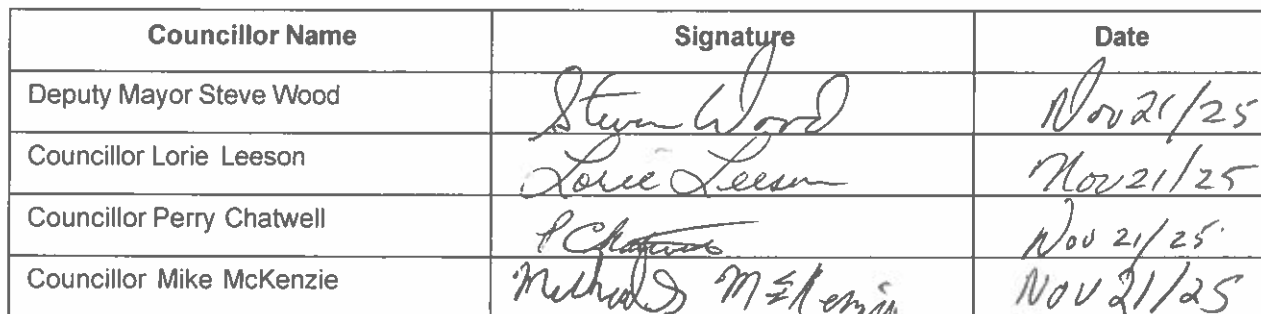 Councillor Name Signature Date
Deputy Mayor Steve Wood Steven Wood Nov 21/25
Councillor Lorie Leeson Lorie Leeson Nov 21/25
Councillor Perry Chatwell P Chatwell Nov 21/25
Councillor Mike McKenzie McKenzie Nov 21/25